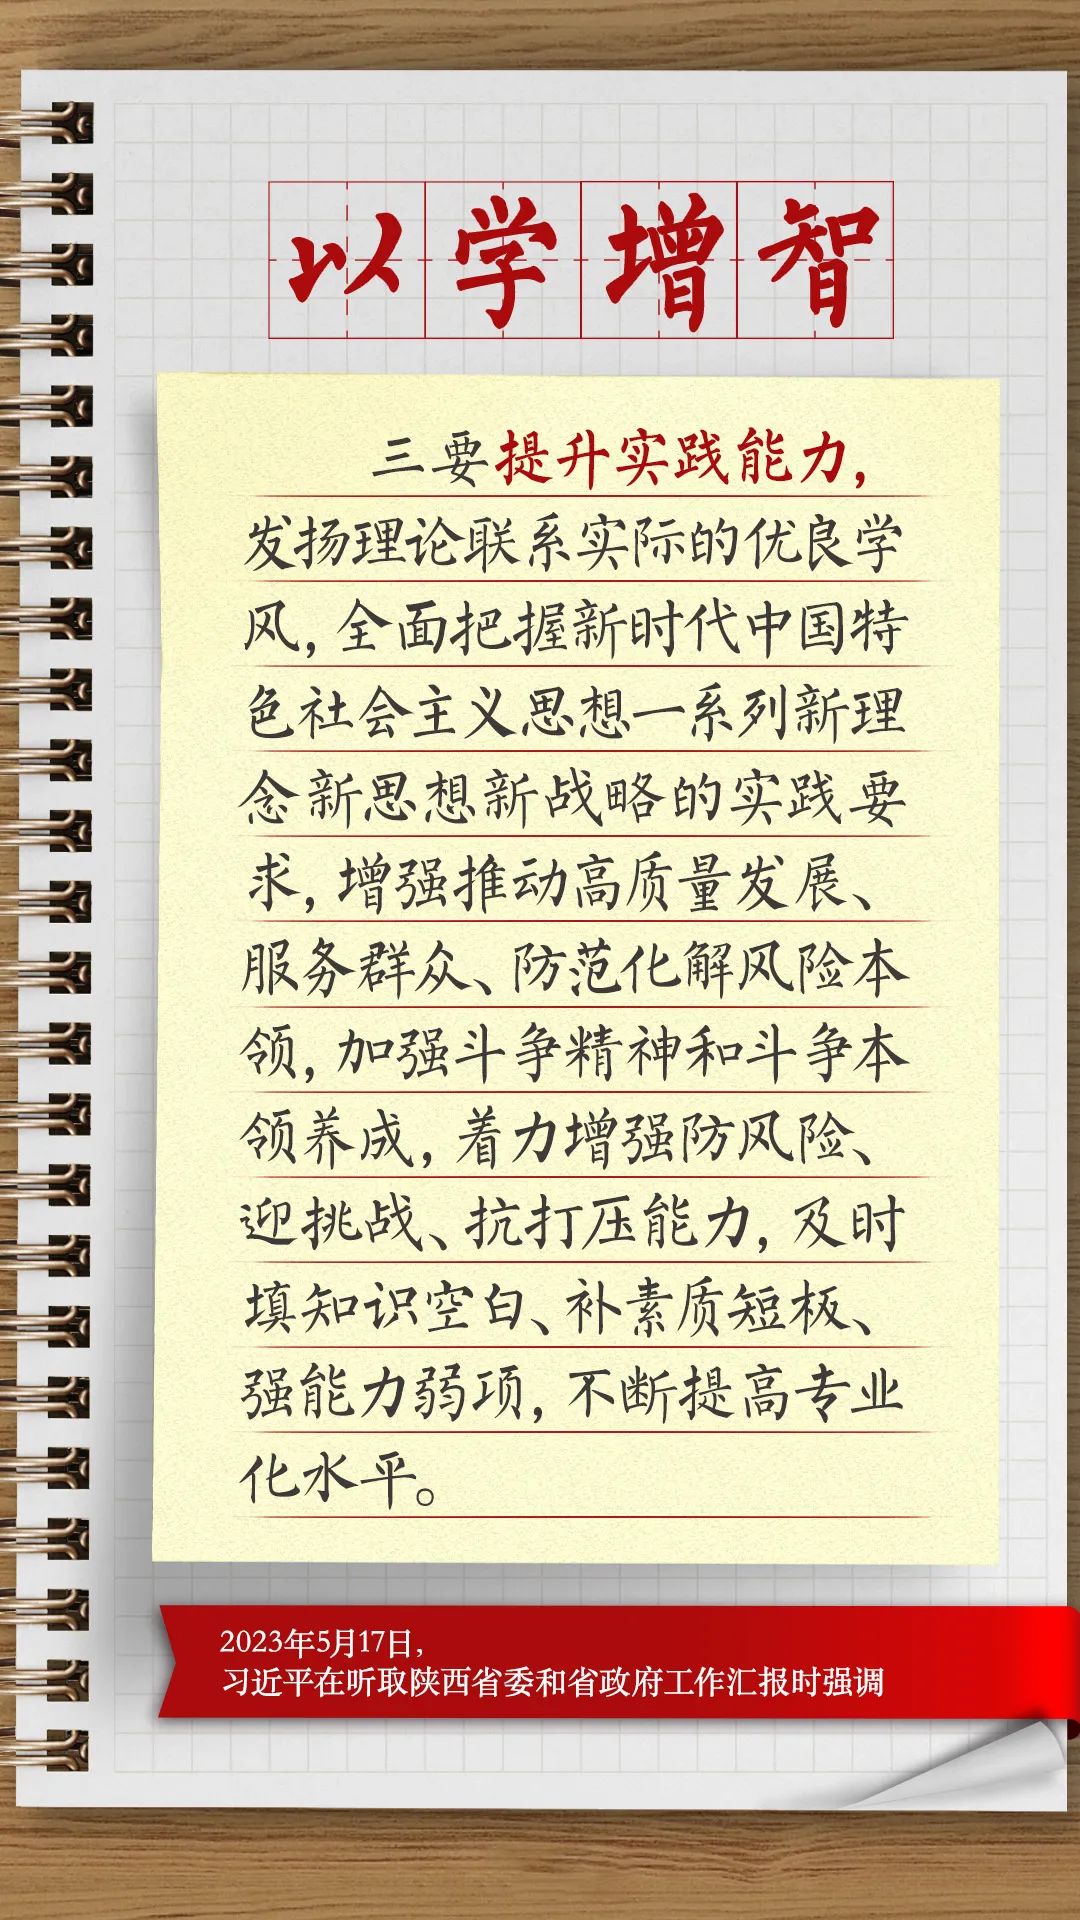 以学增智
三要提升实践能力，
发扬理论联系实际的优良学
风，全面把握新时代中国特
色社会主义思想一系列新理
念新思想新战略的实践要
求，增强推动高质量发展、
服务群众、防范化解风险本
领，加强斗争精神和斗争本
领养成，着力增强防风险、
迎挑战、抗打压能力，及时
填知识空白、补素质短板、
强能力弱项，不断提高专业
化水平。
2023年5月17日，
习近平在听取陕西省委和省政府工作汇报时强调